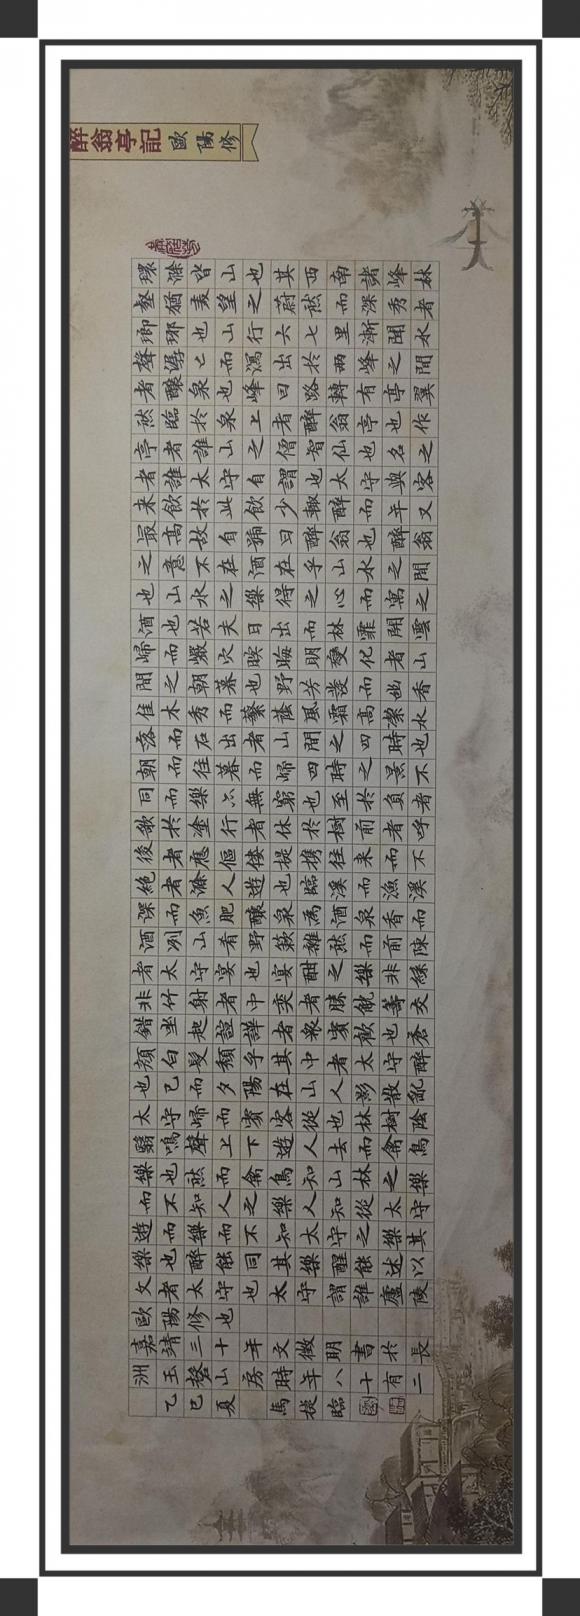 醉翁亭記 歐陽修
環滁皆山也其西南諸峰林
壑猶美望之蔚然而深秀者
瑯琊也山行六七里漸聞水
聲潺々而瀉出於兩峰之間
者釀泉也峰回路轉有亭翼
然臨於泉上者醉翁亭也作
亭者誰山之僧智仙也名之
者誰太守自謂也太守與客
来飲於此飲少輒醉而年又
最高故自號曰醉翁也醉翁
之意不在酒在乎山水之間
也山水之樂得之心而寓之
酒也若夫日出而林霏開雲
歸而巖穴暝晦明變化者山
間之朝暮也野芳發而幽香
佳木秀而繁蔭風霜高潔水
落而石出者山間之四時也
朝而往暮而歸四時之景不
同而樂亦無窮也至於負者
歌於塗行者休於樹前者呼
後者應傴僂提攜往来而不
絕者滁人遊也臨溪而漁溪
深而魚肥釀泉為酒泉香而
酒冽山肴野蔌雜然而前陳
者太守宴也宴酣之樂非絲
非竹射者中奕者勝觥籌交
錯坐起諠譁者眾賓歡也蒼
顏白髮頹乎其中者太守醉
也已而夕陽在山人影散亂
太守歸而賓客從也樹林陰
翳鳴聲上下遊人去而禽鳥
樂也然而禽鳥知山林之樂
而不知人之樂人知從太守
遊而樂而不知太守之樂其
樂也醉能同其樂醒能述以
文者太守也太守謂誰廬陵
歐陽修也
嘉靖三十年文徵明書於長
洲玉磬山房時年八十有二
乙巳夏馬臨